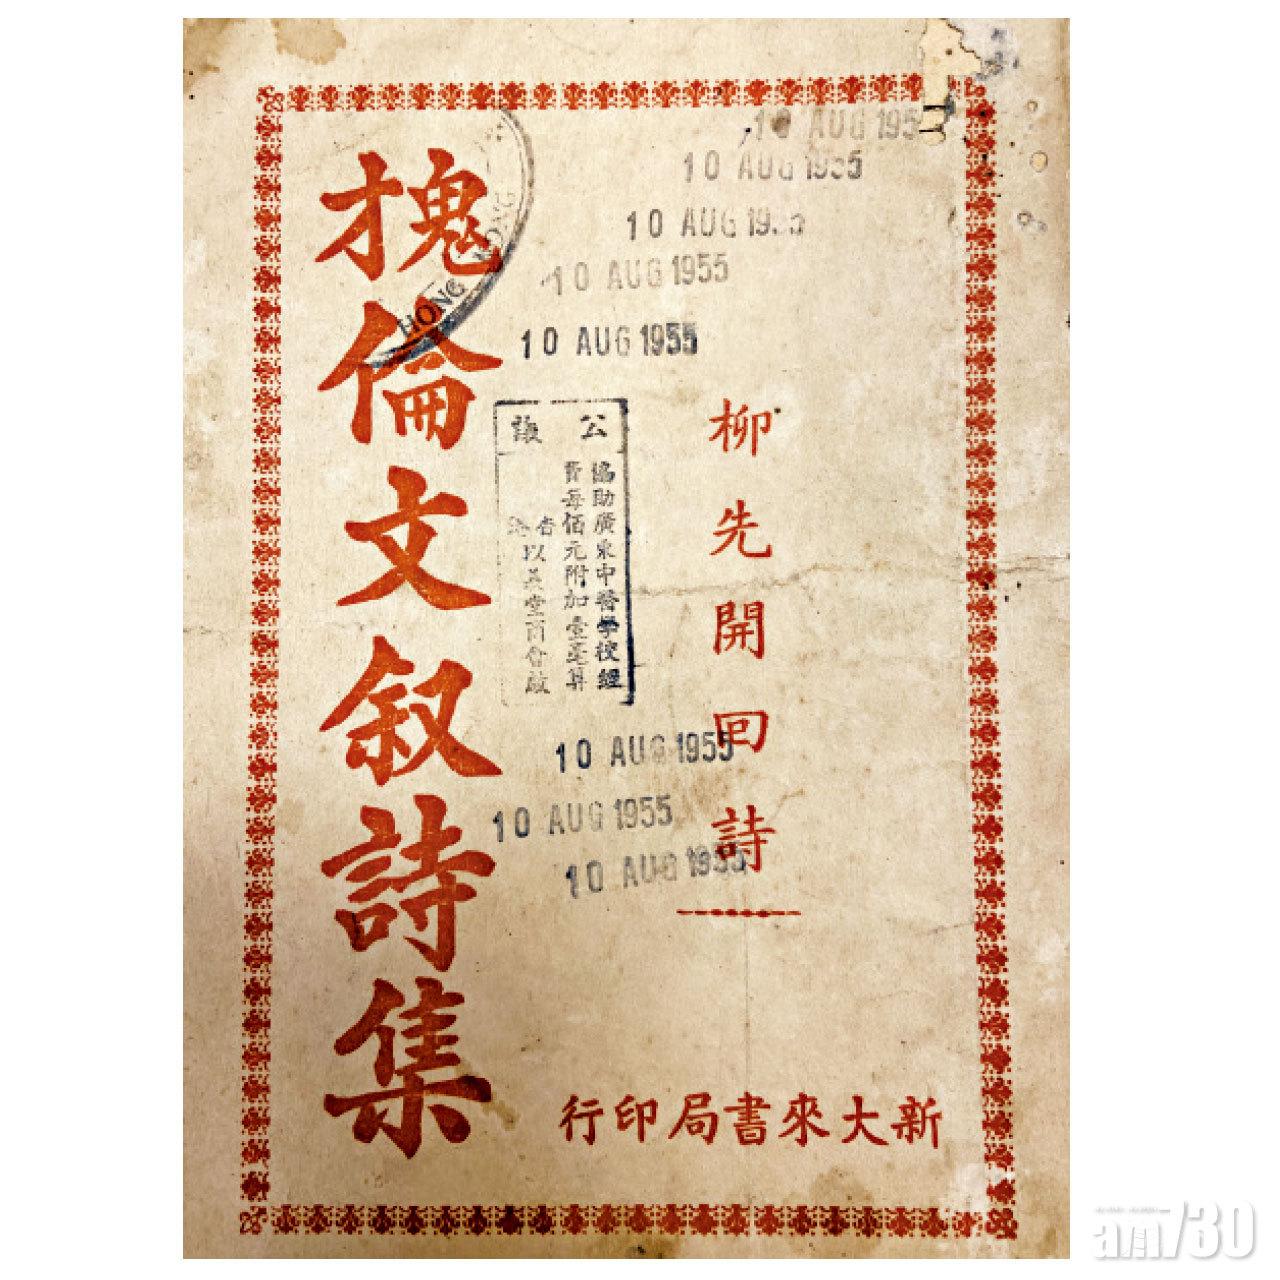 10 AUG 195
10 AUG 1955
10 AUG 19
10 AUG 1955
10 AUG 1955
HONG KONG
柳先開回詩
公議
協助廣東中醫學校經
費每佰元附加壹毫算
以義堂商會啟
10 AUG 1955
10 AUG 1955
10 AUG 1955
倫文敘詩集
新大來書局印行
am730